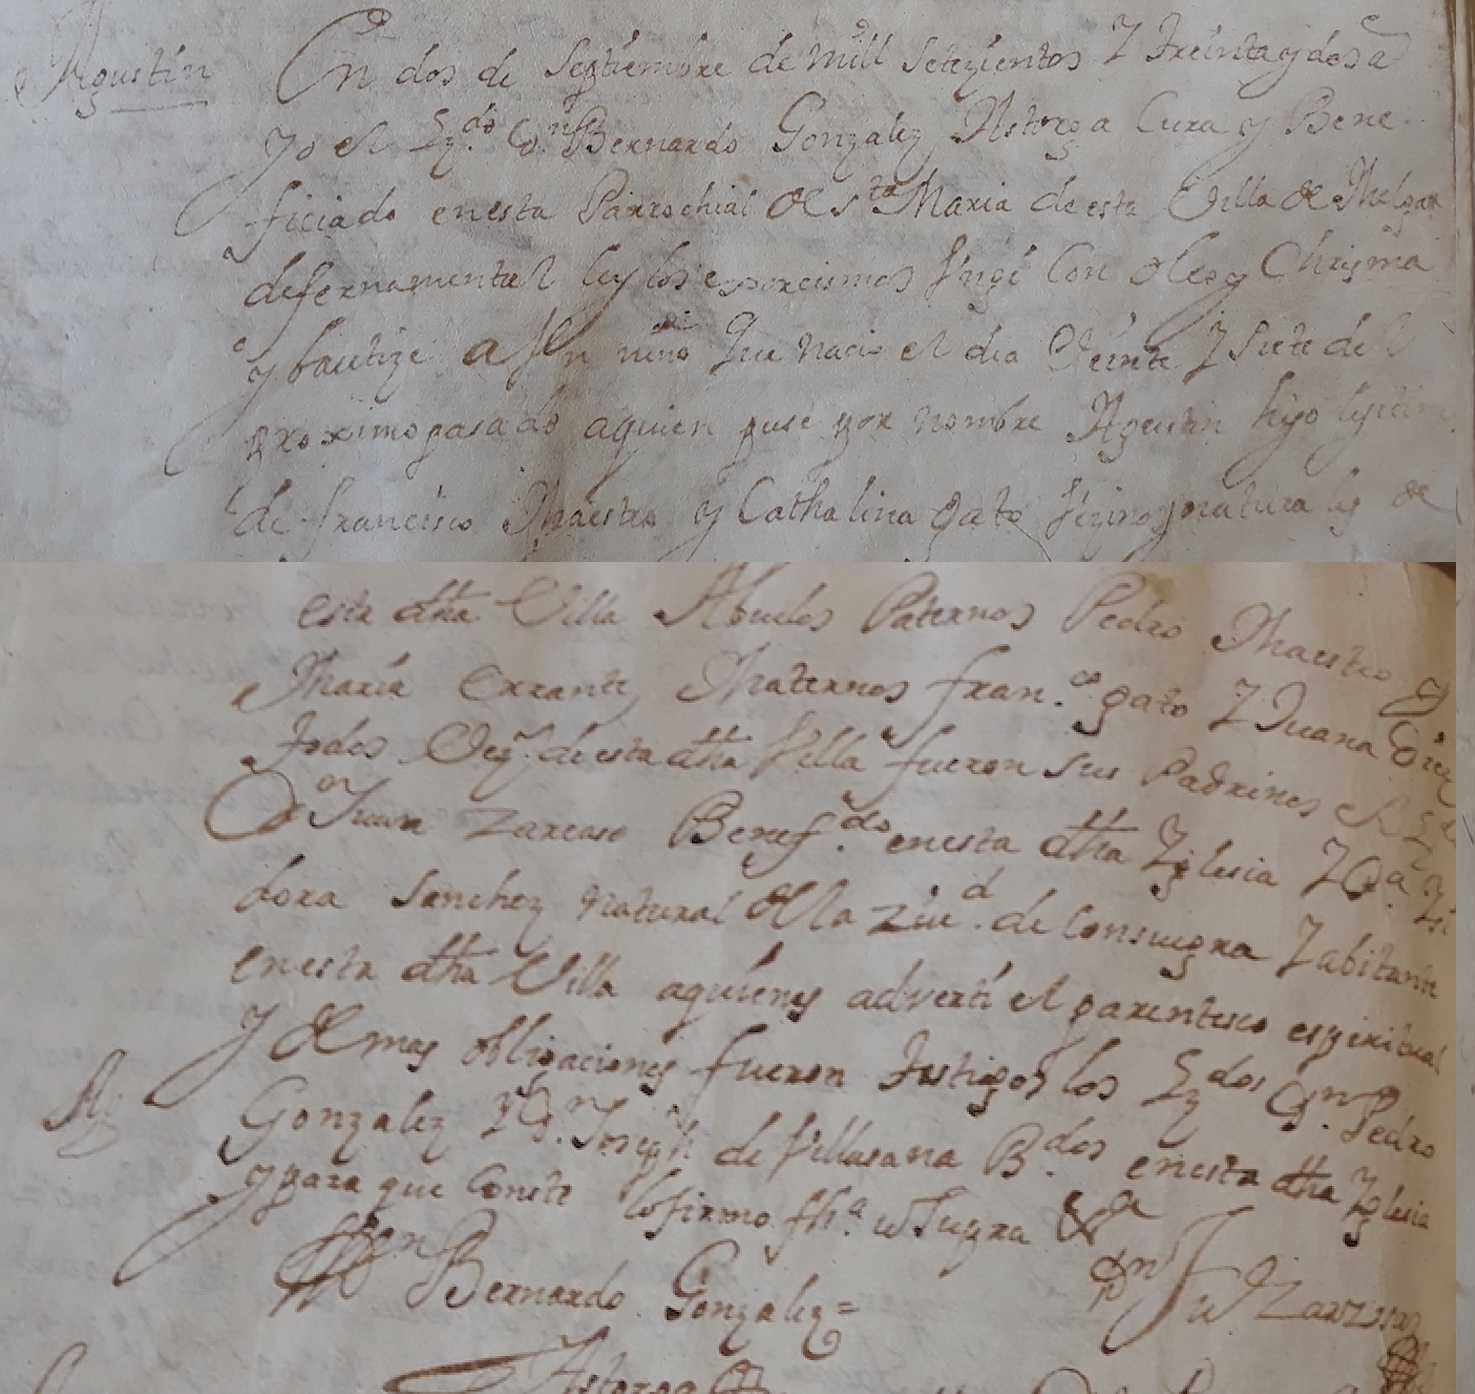 Agustin
En dos de Septiembre de mill setezientos y treinta y dos a
yo el Lz.do Dn Bernardo Gonzalez Astorga Cura y Bene
ficiado en esta Parrochial de sta Maria de esta Villa de Melgar
de fernamental ley los exorcismos Vngi Con oleo y Chrisma
y bautize a Vn niño que nacio el dia Veinte y Siete del
proximo pasado a quien puse por nombre Agustin hijo lijitim
de francisco Maestro y Cathalina gato Vezinos y naturales de
esta dha Villa Abuelos Paternos Pedro Maestro y
Maria Errante Maternos fran.co gato y Juana Diez
todos Vez.s de esta dha Villa fueron sus Padrinos el Lz.do
Dn Juan Zarzoso Benef.do en esta dha Yglesia y D.a Ysi
dora Sanchez natural de la ziu.d de Consuegra y abitante
en esta dha Villa a quienes adverti el parentesco espiritual
y demas obligaciones fueron testigos los Lz.dos Dn Pedro
Gonzalez y Dn Joseph de Villasana B.dos en esta dha Yglesia
y para que Conste lo firmo fh.a ut Supra
Dn Bernardo Gonzalez =
Astorga
Dn Ju